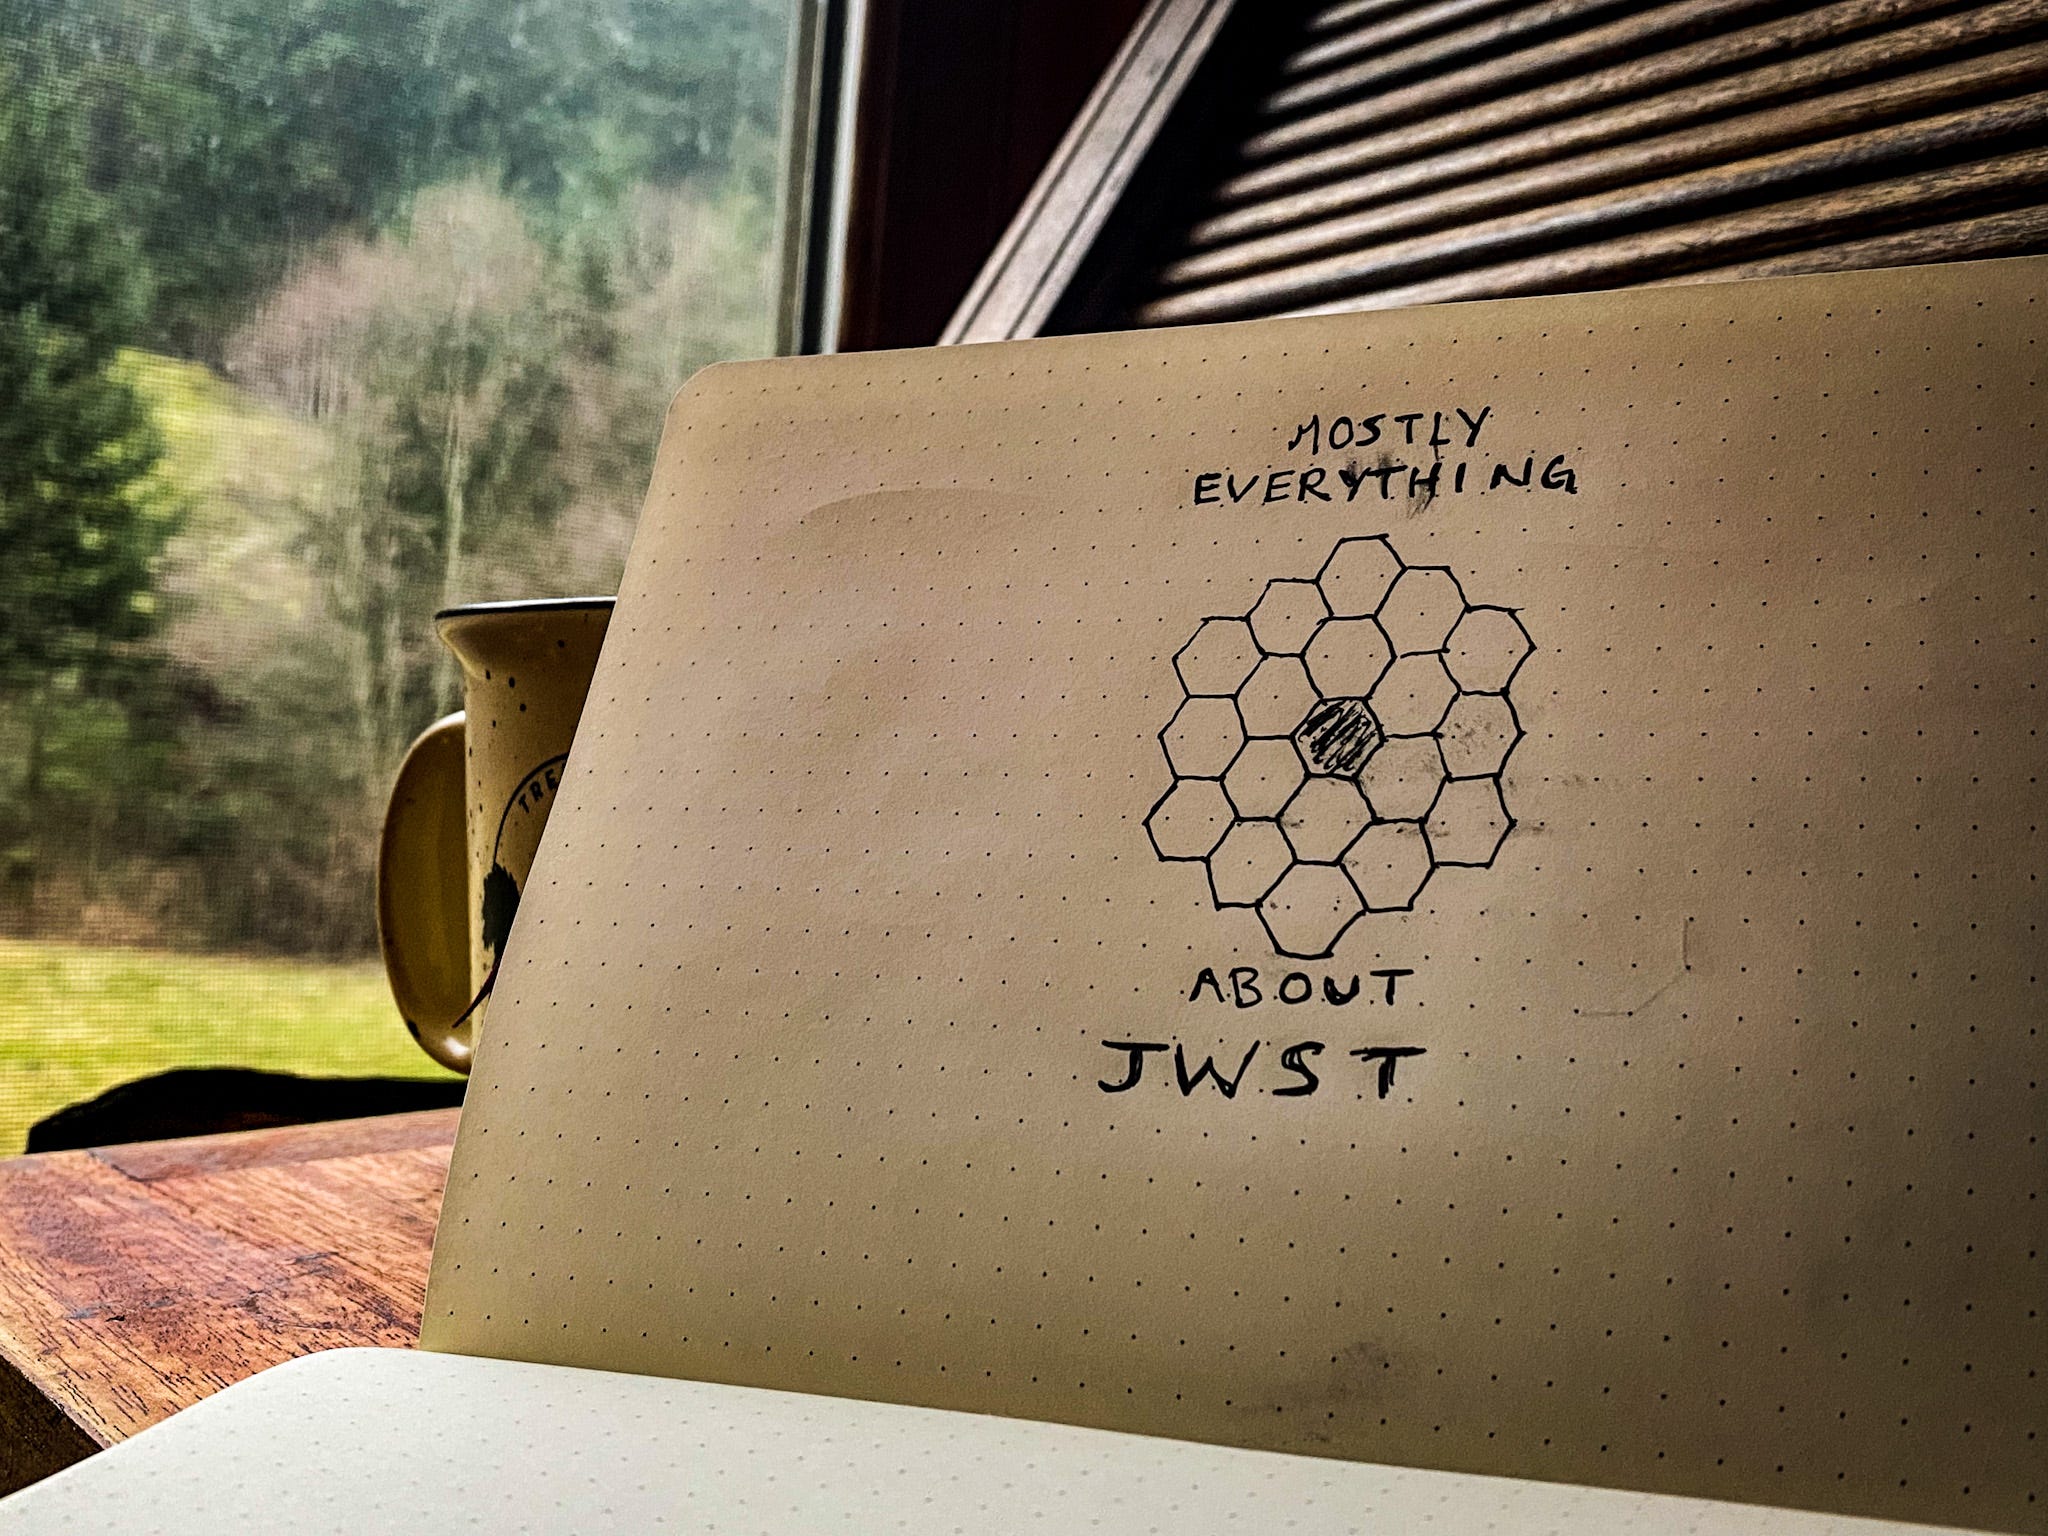 MOSTLY
EVERYTHING
ABOUT
JWST